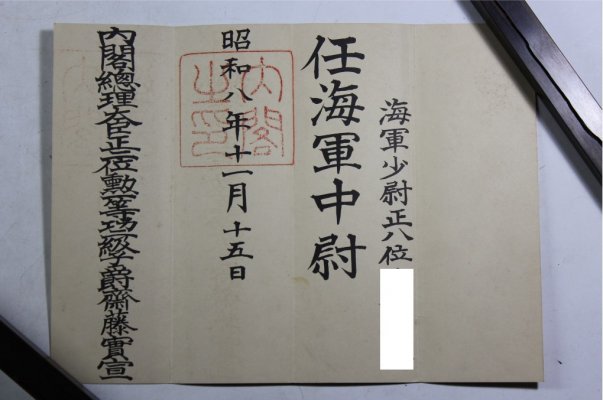 海軍少尉正八位
任海軍中尉
昭和八年十一月十五日
內閣之印
內閣總理大臣正二位勲一等功二級子爵齋藤實宣